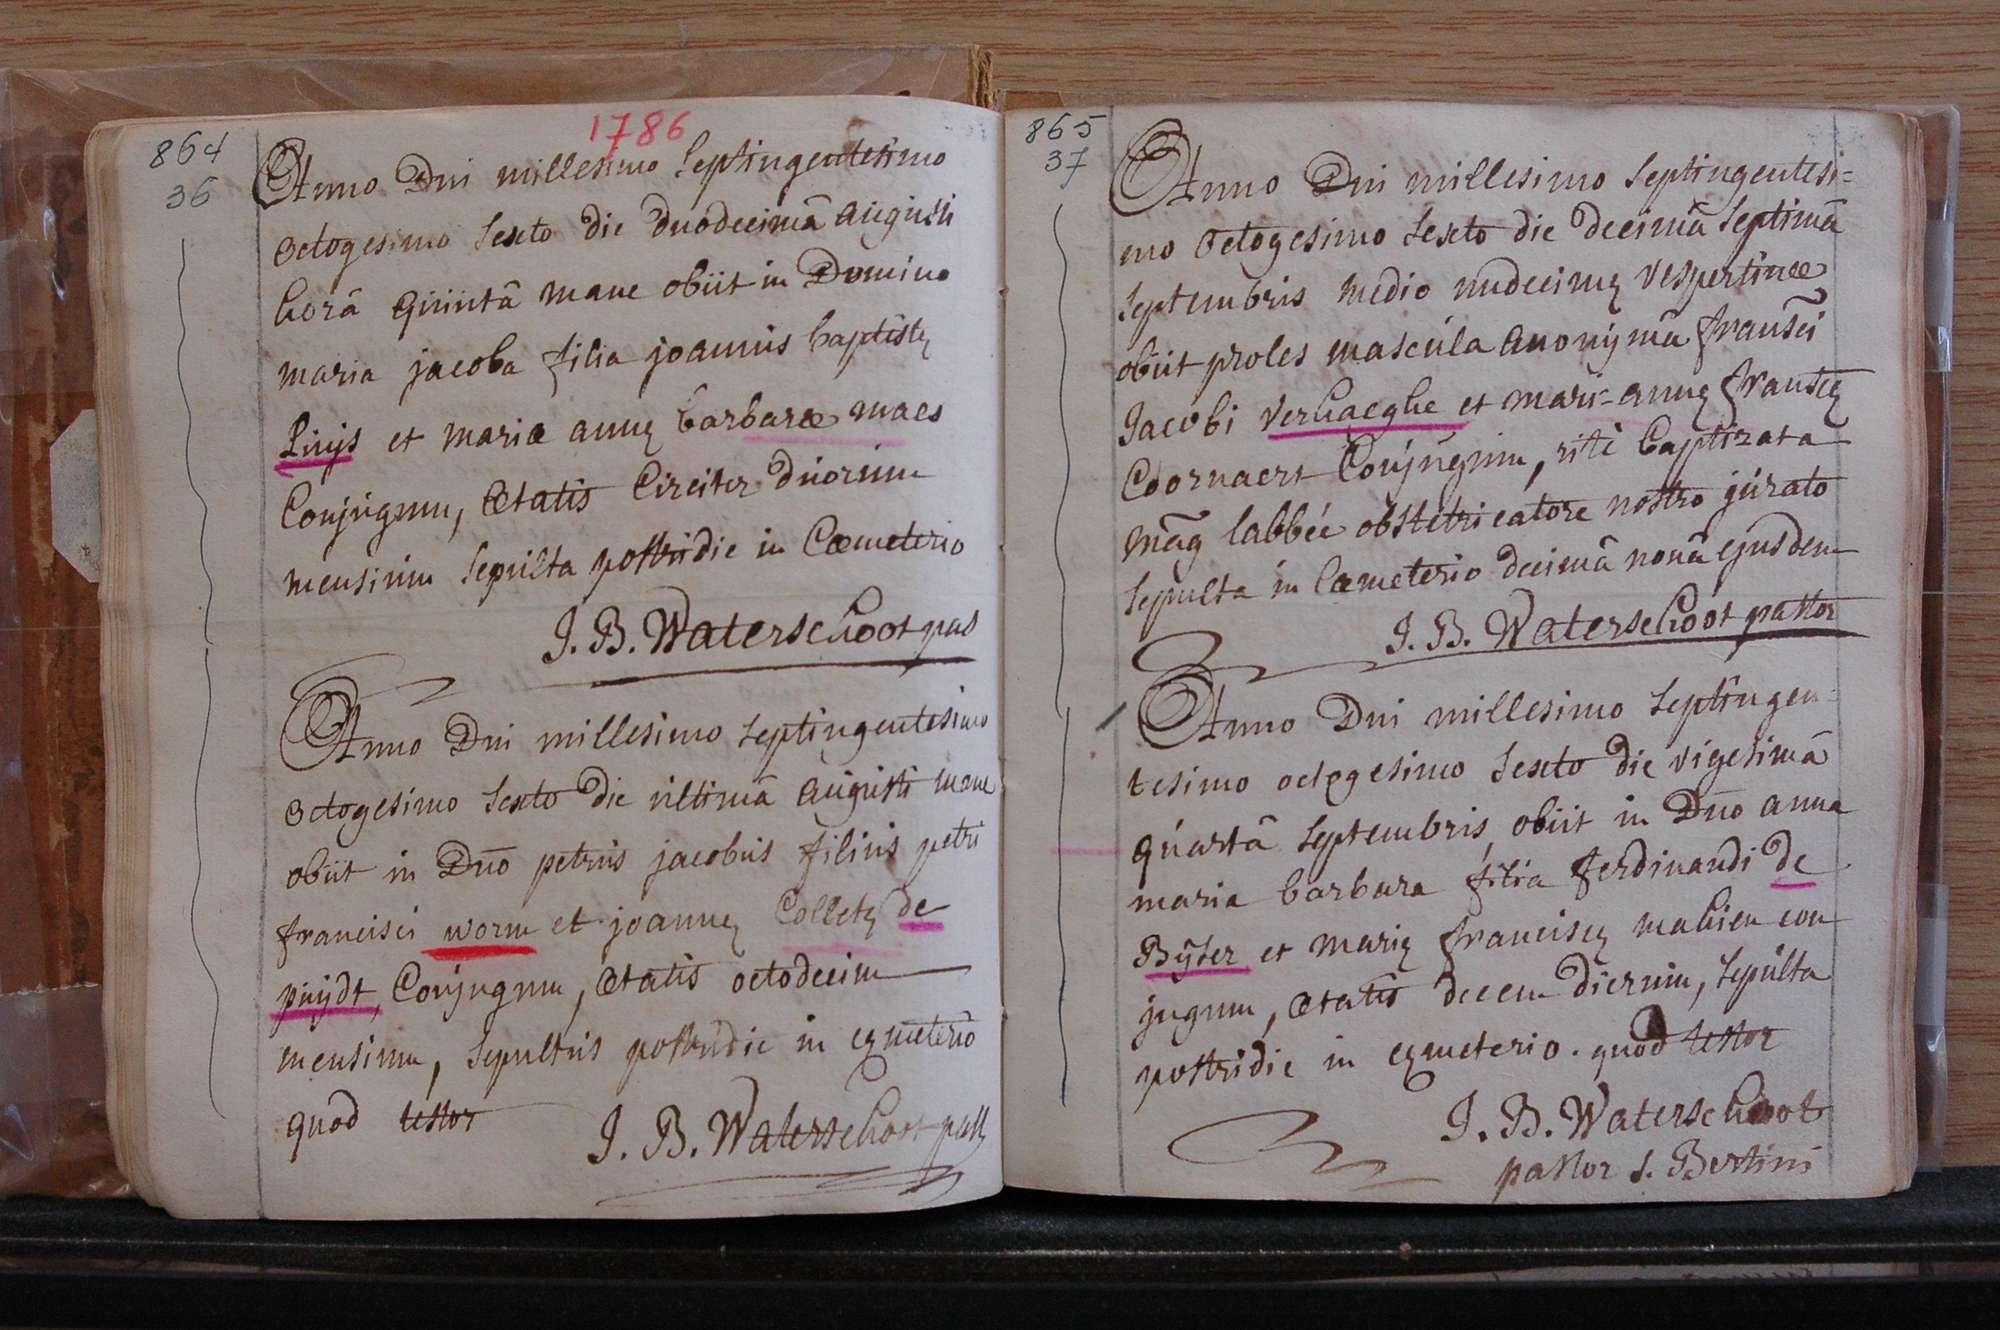 1786
864
36
Anno Dni millesimo Septingentesimo
octogesimo sexto die duodecimâ Augusti
horâ quintâ mane obiit in Domino
maria jacoba filia joannis baptistę
Luijs et mariæ annę barbaræ maes
Conjugum, Ætatis Circiter duorum
mensium Sepulta postridie in Cœmeterio
J. B. Waterschoot pas
Anno Dni millesimo Septingentesimo
octogesimo sexto die ultimâ Augusti mane
obiit in Dño petrus jacobus filius petri
francisci worm et joannę Colletę de
puijdt, Conjugum, Ætatis octodecim
mensium, Sepultus postridie in cęmeterio
quod testor
J. B. Waterschoot past
865
37
Anno Dni millesimo Septingentesi=
mo octogesimo sexto die decimâ Septimâ
Septembris medio undecimę vespertinæ
obiit proles mascula anonyma fransci
Jacobi verhaeghe et mari=annę franscę
Coornaert Conjugum, rite baptizata
a labbée obstetricatore nostro jurato
Sepulta in Cœmeterio decimâ nonâ ejusdem
J. B. Waterschoot pastor
Anno Dni millesimo Septingen=
tesimo octogesimo sexto die vigesimâ
quartâ Septembris, obiit in Dño anna
maria barbara filia ferdinandi de
Bÿser et marię franciscę mahieu con
jugum, Ætatis decem dierum, Sepulta
postridie in cęmeterio. quod testor
J. B. Waterschoot
pastor S. Bertini